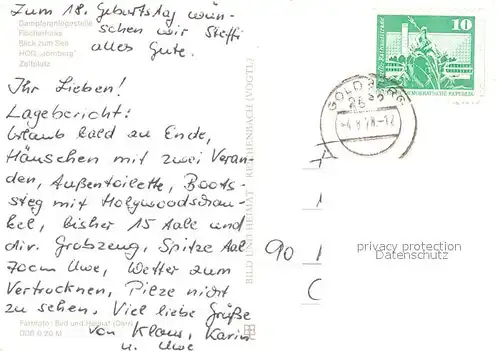 Zum 18. Geburtstag wün-
schen wir Steffi
alles Gute.
Dampferanlegestelle
Fischerhaus
Blick zum See
HOG „Jörnberg"
Zeltplatz
Ihr Lieben!
Lagebericht:
Urlaub bald zu Ende,
Häuschen mit zwei Veran-
den, Außentoilette, Boots-
steg mit Holywoodschau-
kel, bisher 15 Aale und
div. Grobzeug, Spitze Aal
70cm Uwe, Wetter zum
Vertrocknen, Pilze nicht
zu sehen. Viel liebe Grüße
von Klaus, Karin
u. Uwe
Farbfoto: Bild und Heimat (Darr)
0,20 M
BILD UND HEIMAT REICHENBACH (VOGTL)
10
DEMOKRATISCHE REPUBLIK
GOLDBERG
90
privacy protection
Datenschutz